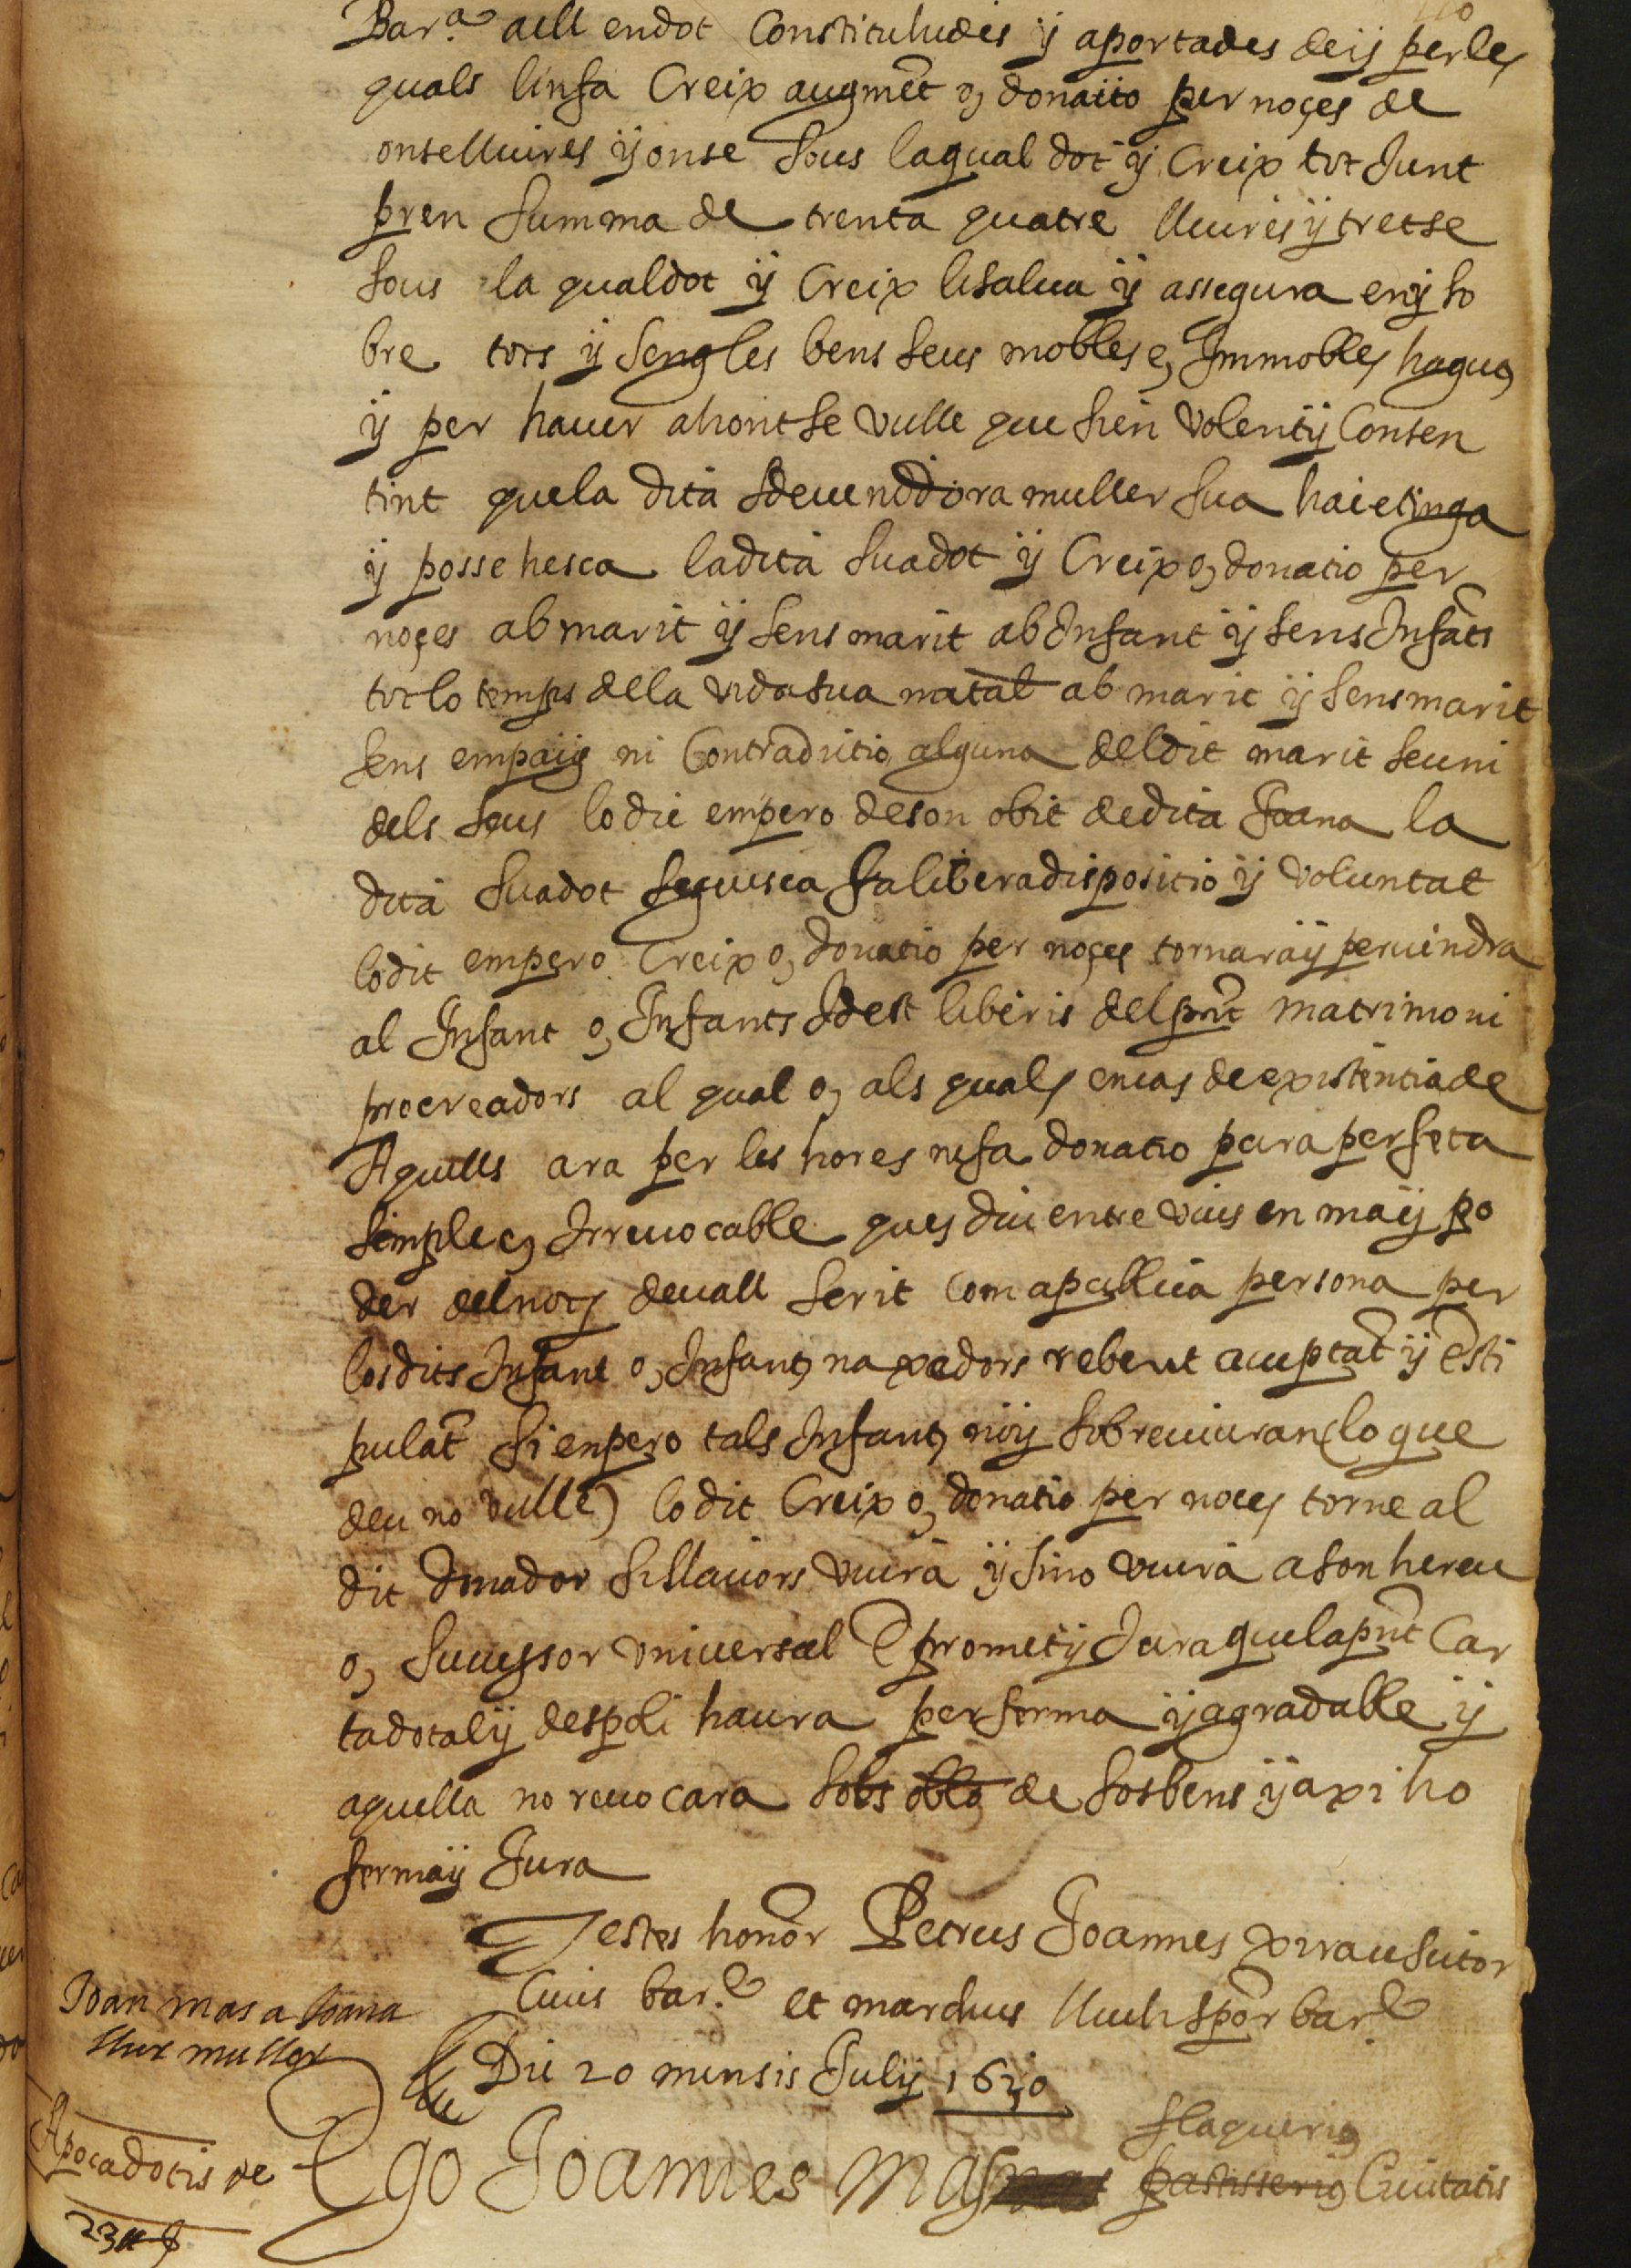 110
Bar.ª aell endot Constituhides ÿ aportades deÿ perles
quals linfa Creix augmēt o, donatio per noçes de
onselliures ÿonse sous laqual dot ÿ Creix tot Junt
pren summa de trenta quatre lliures ÿ tretse
sous la qualdot ÿ Creix lisalua ÿ assegura enÿ so
bre tots ÿ sengles bens seus mobles e, Immobles haguts
ÿ per hauer ahont se vulle que sien volentÿ Consen
tint quela dita sdeuenidora muller sua haie tinga
ÿ possehesca ladita suadot ÿ Creix o, donatio per
noçes ab marit ÿ sens marit ab Infant ÿ sens Infāts
tot lo temps dela vida sua natal ab marit ÿ sens marit
sens empaig ni Contradictio alguna deldit marit seu ni
dels seus lo die empero deson obit dedita Joana la
dita suadot seguisca sa liberadispositio ÿ voluntat
lodit empero Creix o, donatio per noçes tornaraÿ peruindra
al Infant o, Infants Idest liberis delpn̄t matrimoni
procreadors al qual o, als quals encas de existentia de
Aquells ara per les hores nefa donatio pura perfeta
simple e, Irreuocable ques diu entre vius en maÿ po
der delnot. deuall scrit com apublica persona per
losdits Infant o, Infants naxedors rebent acceptāt ÿ esti
pulāt si enpero tals Infants noÿ sobreuiuran (lo que
deu no vulle) lo dit Creix o, donatio per noces torne al
dit donador sillauors viura ÿ sino viura ason hereu
o, successor vniuersal E prometÿ Jura quelapn̄t Car
tadotalÿ despoli haura per ferma ÿ agradable ÿ
aquella no reuocara sobs oblo de sosbens ÿ axi ho
fermaÿ Jura
Testes honor Petrus Joannes xirau sutor
Ciuis bar.e et marchus lluch spōr bar.e
Joan mas a Joana
muller
Die 20 mensis Julÿ 1630
Apocadotis de
23 ll
flaquerius
Ego Joannes Mas pastisserius Ciuitatis